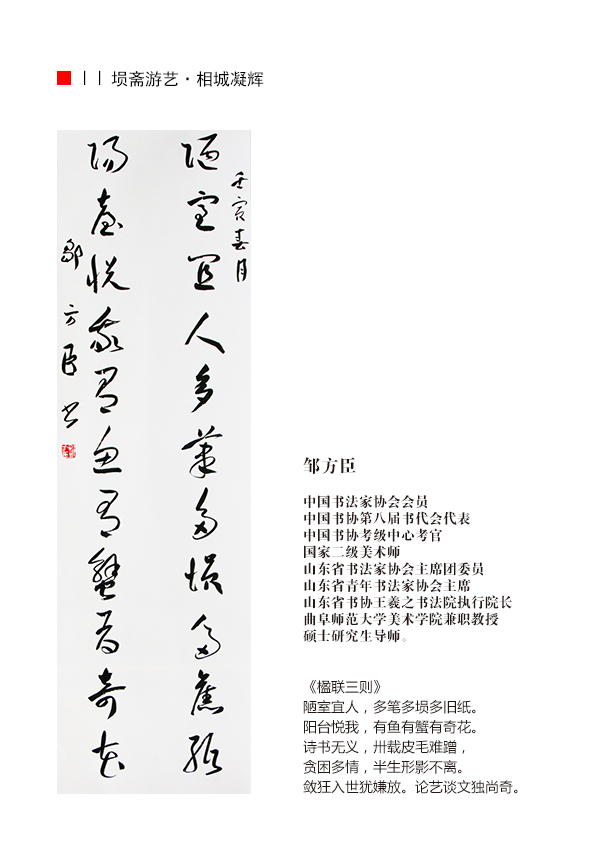 埙斋游艺·相城凝辉
壬寅春月
陋室宜人多笔多埙多旧纸
阳台悦我有鱼有蟹有奇花
邹方臣书
邹方臣
中国书法家协会会员
中国书协第八届书代会代表
中国书协考级中心考官
国家二级美术师
山东省书法家协会主席团委员
山东省青年书法家协会主席
山东省书协王羲之书法院执行院长
曲阜师范大学美术学院兼职教授
硕士研究生导师。
《楹联三则》
陋室宜人，多笔多埙多旧纸。
阳台悦我，有鱼有蟹有奇花。
诗书无义，卅载皮毛难蹭，
贫困多情，半生形影不离。
敛狂入世犹嫌放。论艺谈文独尚奇。